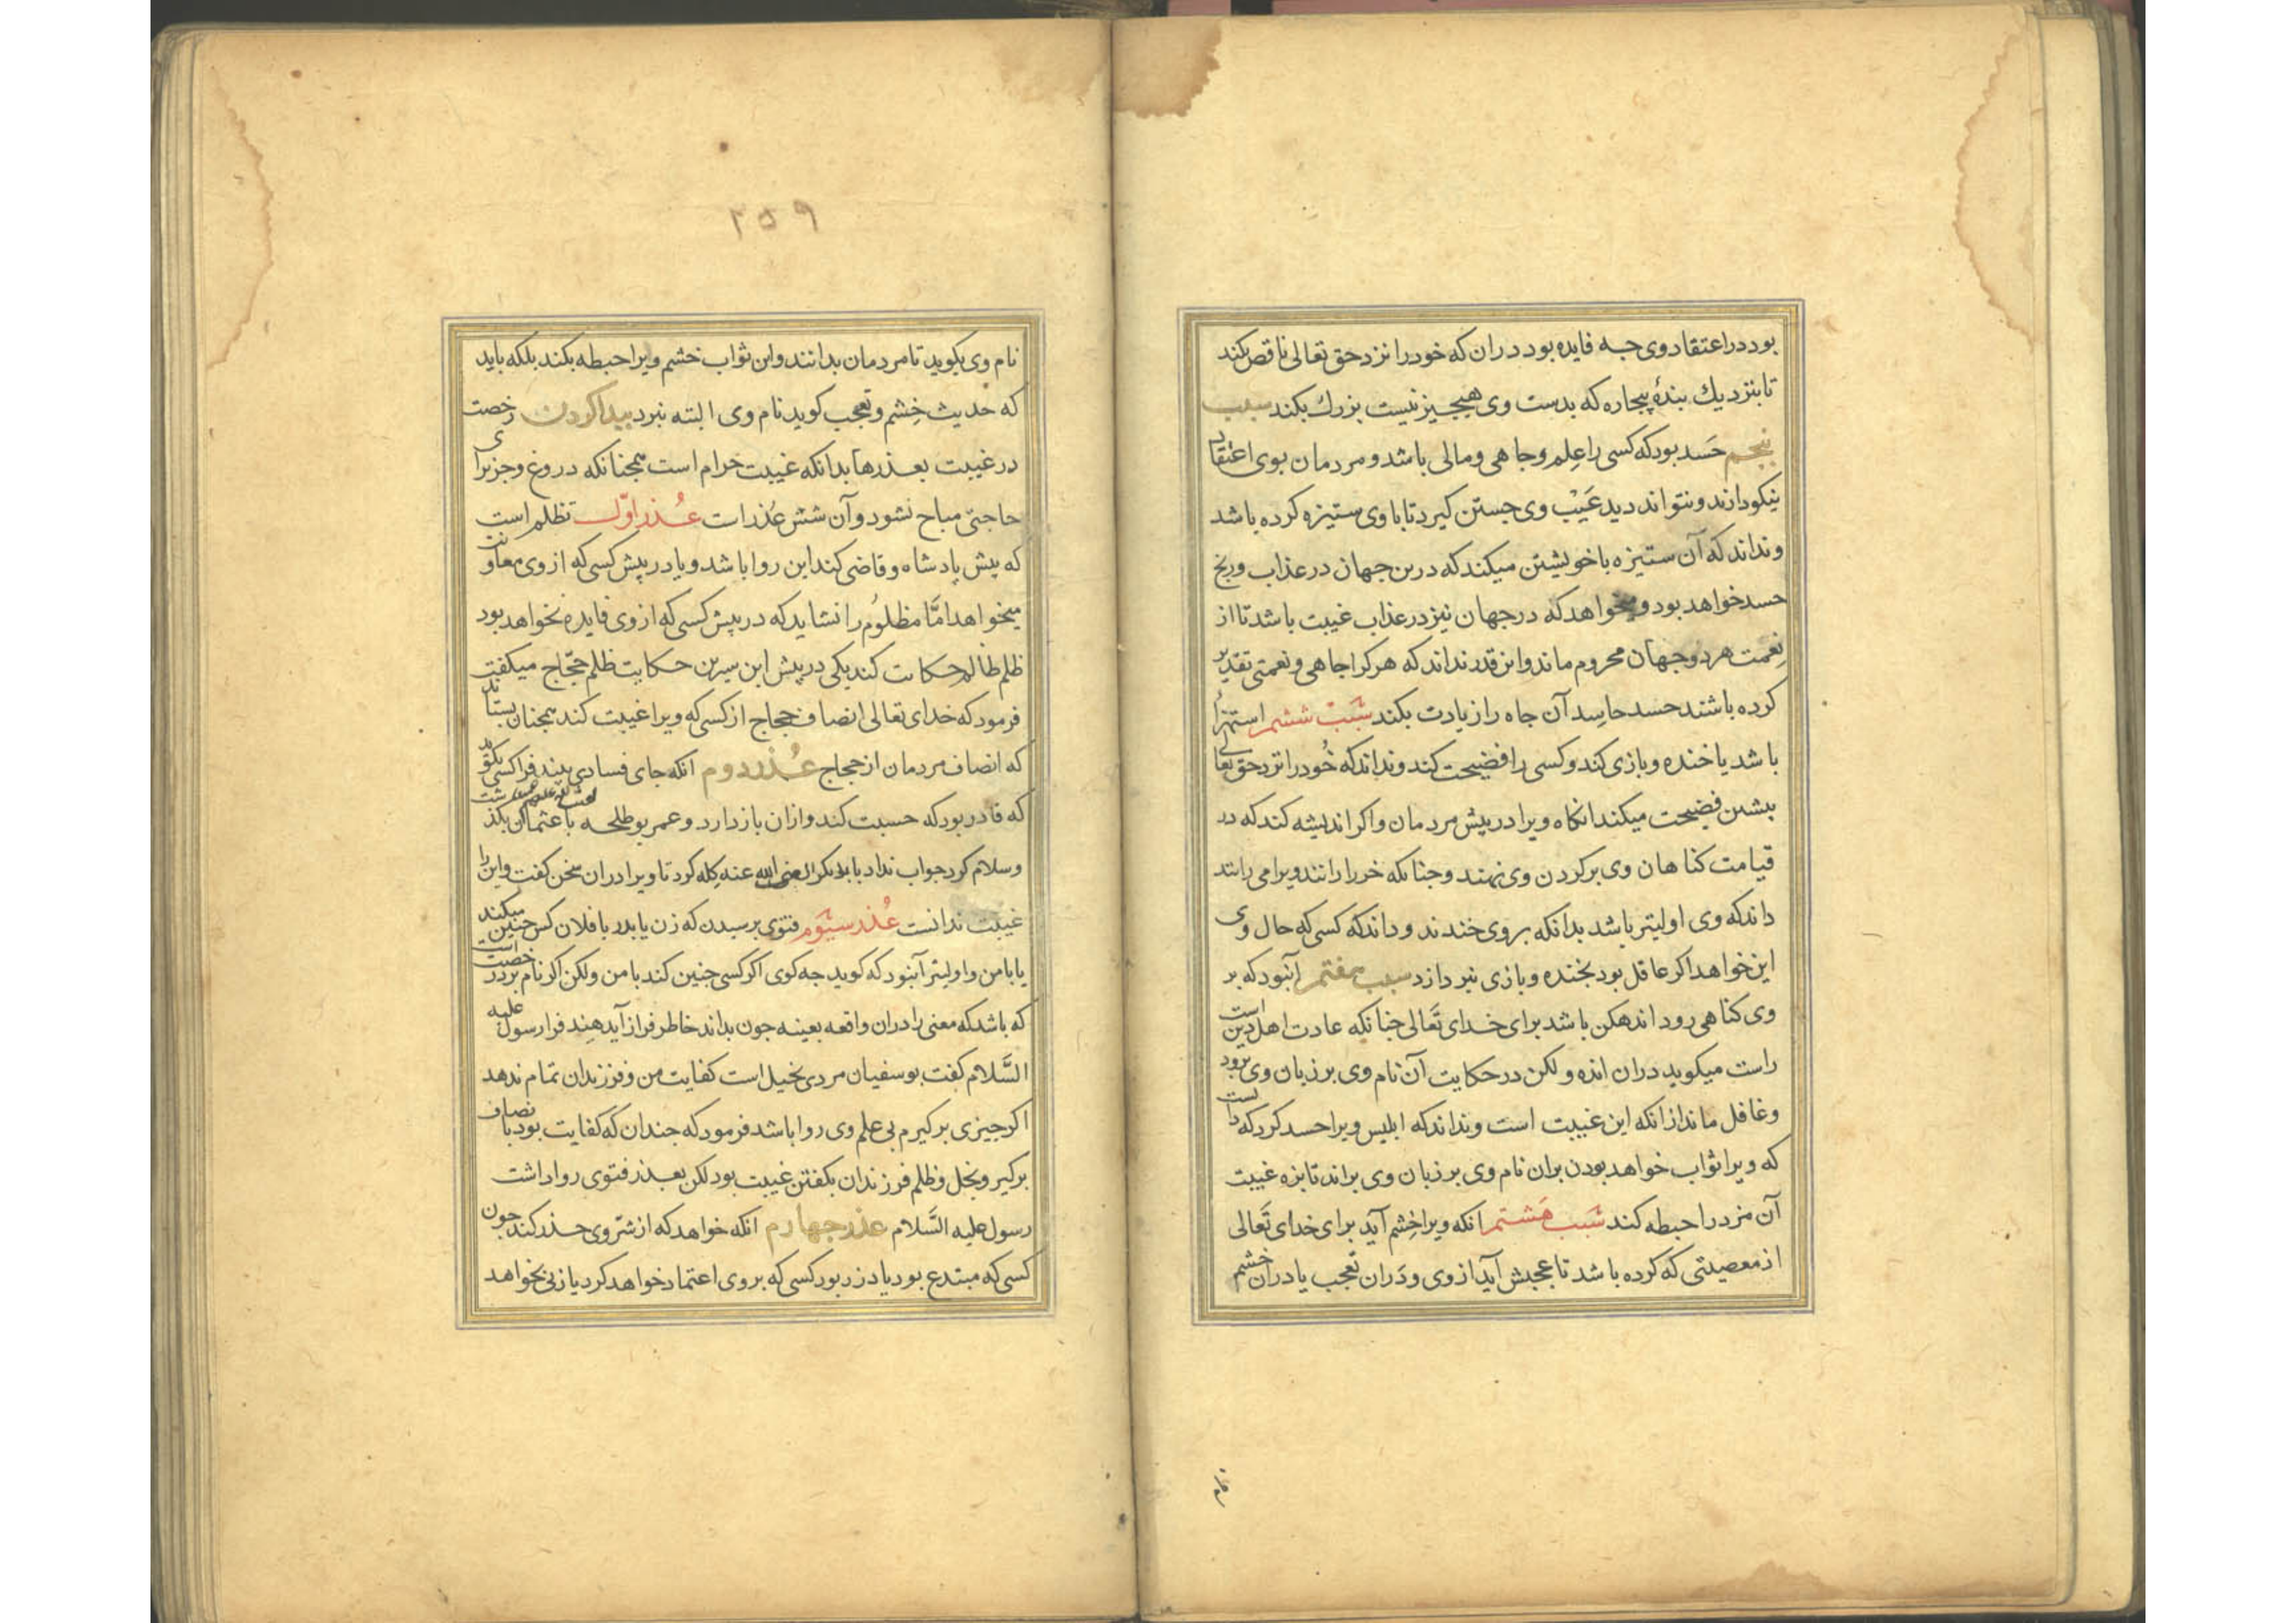 بود در اعتقاد وی جه فایده بود دران که خود را نزد حق تعالی ناقص کند
تا بنزدیك بندۀ بیجاره که بدست وی هیجیز نیست بزرك بکند سبب
بنجم حَسد بود که کسی را عِلم و جاهی و مالی باشد و مردمان بوی اعتقاد
نیکو دارند و نتواند دید عَیْب وی جستن کیرد تا با وی ستیزه کرده باشد
و نداند که آن ستیزه با خویشتن میکند که درین جهان در عذاب و رنج
حسد خواهد بود و میخواهد که در جهان نیز در عذاب غیبت باشد تا از
نِعمت هر دو جهان محروم ماند و این قدر نداند که هر کرا جاهی و نعمتی تقدیر
کرده باشند حسد حاسِد آن جاه را زیادت بکند سَبَب ششم استهزأ
باشد یا خنده و بازی کند و کسی را فضیحت کند و نداند که خُود را نزد حق تعالی
بیشتر فضیحت میکند انکاه ویرا در پیش مردمان و اکر اندیشه کند که در
قیامت کناهان وی بر کردن وی نهند و جنانکه خر را رانند ویرا می رانند
داند که وی اولیتر باشد بدانکه بر وی خندند و داند که کسی که حال وی
این خواهد اکر عاقل بود بخنده و بازی نبردازد سبب هفتم آنبود که بر
وی کناهی رود اندهکن باشد برای خدای تَعالی جنانکه عادت اهل دین است
راست میکوید دران انده ولکن در حکایت آن نام وی بر زبان وی برود
و غافل ماند از انکه این غیبت است و نداند که ابلیس ویرا حسد کرد که دانست
که ویرا ثواب خواهد بودن بران نام وی بر زبان وی براند تا بزه غیبت
آن مزد را حبطه کند سَبَب هَشتم انکه ویرا خِشم آید برای خدای تَعالی
از معصیتی که کرده باشد تا عجبش آید از وی و دَران تعجب یا دران خشم
نام
۲۵۹
نام وی بکوید تا مردمان بدانند و این ثواب خشم ویرا حبطه بکند بلکه باید
که حدیث خِشم و تعجب کوید نام وی البته نبرد بیدا کردن رخصت
در غیبت بعذرها بدانکه غیبت حرام است همجنانکه دروغ و جز برای
حاجتی مباح نشود و آن شش عُذر است عُذر اوّل تظلم است
که پیش پادشاه و قاضی کند این روا باشد و یا در پیش کسی که از وی معاونت
میخواهد امَّا مظلوُم را نشاید که در پیش کسی که از وی فایده نخواهد بود
ظلم ظالم حکایت کند یکی در پیش ابن سیرین حکایت ظلم حجّاج میکفت
فرمود که خدای تعالی انصاف حجاج از کسی که ویرا غیبت کند همجنان بستاند
که انصاف مردمان از حجاج عُذر دوم انکه جای فسادی بیند فرا کسی بکوید
که قادر بود که حسبت کند و ازان باز دارد و عمر بو طلحه با عثمان بکذشت
و سلام کرد جواب نداد با ابوبکر رضی الله عنه کِله کرد تا ویرا دران سخن کفت و این را
غیبت ندانست عُذر سیّوم فتوی برسیدن که زن یا بدر یا فلان کس جنین میکند
یا با من و اولیتر آنبود که کوید جه کوی اکر کسی جنین کند با من ولکن اکر نام برد رخصت است
که باشد که معنی را دران واقعه بعینه جون بداند خاطر فراز آید هِند فرا رسول علیه
السَّلام کفت بو سفیان مردی بخیل است کفایت من و فرزندان تمام ندهد
اکر جیزی برکیرم بی علم وی روا باشد فرمود که جندان که کفایت بود بانصاف
برکیر و بخل و ظلم فرزندان بکفتن غیبت بود لکن بعذر فتوی روا داشت
رسول علیه السَّلام عذر جهارم انکه خواهد که از شرّ وی حذر کند جون
کسی که مبتدع بود یا دزد بود کسی که بر وی اعتماد خواهد کرد یا زنی بخواهد